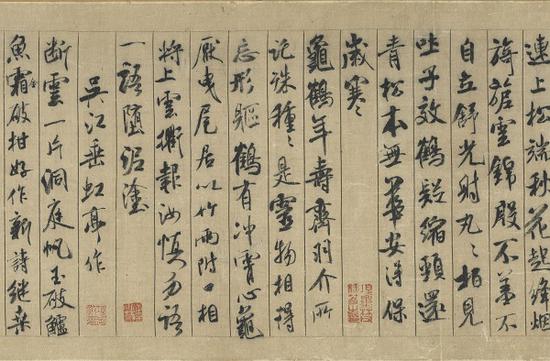 連上松端秋花起絳烟
旖旎雲錦殷不羞不
自立舒光射丸〻柏見
吐子效鶴疑縮頸還
青松本無華安得保
歲寒〻
龜鶴年壽齊羽介所
託殊種〻是靈物相得
忘形軀鶴有沖霄心龜
厭曳尾居以竹兩附口相
將上雲衢報汝慎勿語
一語墮泥塗
吳江垂虹亭作
断雲一片洞庭帆玉破鱸
魚霜金破柑好作新詩繼桑